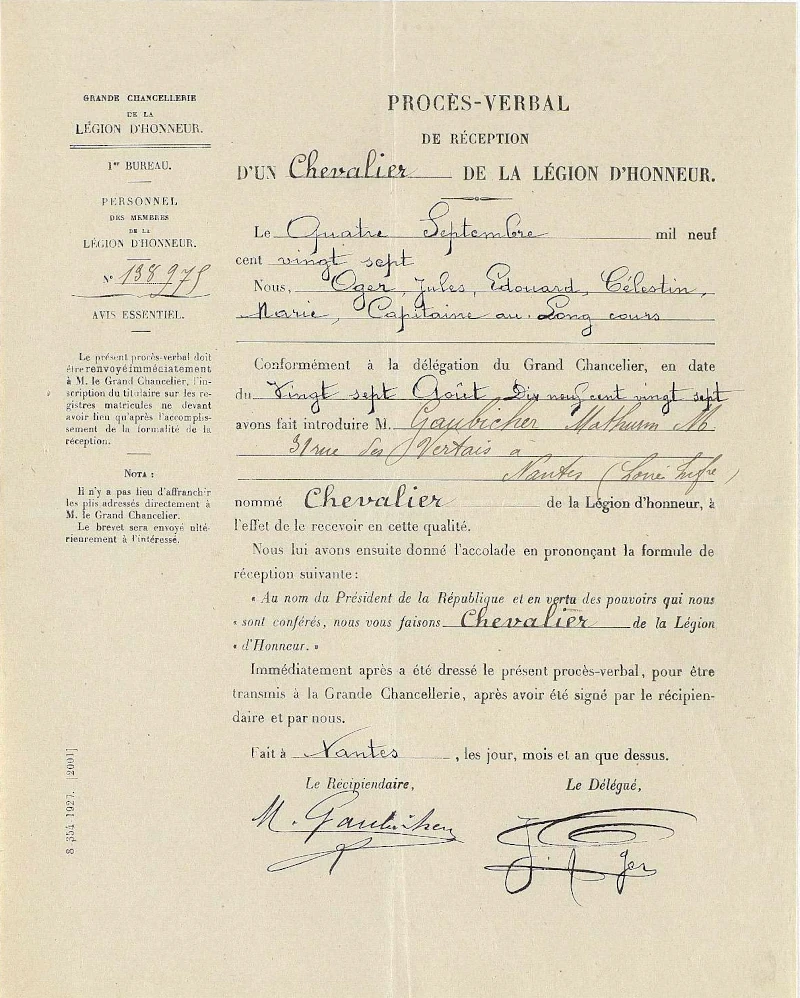 GRANDE CHANCELLERIE
DE LA
LÉGION D'HONNEUR.
1er BUREAU.
PERSONNEL
DES MEMBRES
DE LA
LÉGION D'HONNEUR.
N° 138975
AVIS ESSENTIEL.
Le présent procès-verbal doit
être renvoyé immédiatement
à M. le Grand Chancelier, l'ins-
cription du titulaire sur les re-
gistres matricules ne devant
avoir lieu qu'après l'accomplis-
sement de la formalité de la
réception.
NOTA :
Il n'y a pas lieu d'affranchir
les plis adressés directement à
M. le Grand Chancelier.
Le brevet sera envoyé ulté-
rieurement à l'intéressé.
8 354 1927. [2001]
PROCÈS-VERBAL
DE RÉCEPTION
D'UN Chevalier DE LA LÉGION D'HONNEUR.
Le Quatre Septembre mil neuf
cent vingt sept
Nous, Oger, Jules, Edouard, Célestin,
Marie, Capitaine au Long cours
Conformément à la délégation du Grand Chancelier, en date
du Vingt sept Août Dix neuf cent vingt sept
avons fait introduire M. Gaubicher Mathurin M
31 rue des Vertais à
Nantes (Loire Infre)
nommé Chevalier de la Légion d'honneur, à
l'effet de le recevoir en cette qualité.
Nous lui avons ensuite donné l'accolade en prononçant la formule de
réception suivante :
« Au nom du Président de la République et en vertu des pouvoirs qui nous
« sont conférés, nous vous faisons Chevalier de la Légion
« d'Honneur. »
Immédiatement après a été dressé le présent procès-verbal, pour être
transmis à la Grande Chancellerie, après avoir été signé par le récipien-
daire et par nous.
Fait à Nantes, les jour, mois et an que dessus.
Le Récipiendaire,
Le Délégué,
M. Gaubicher
J. Oger